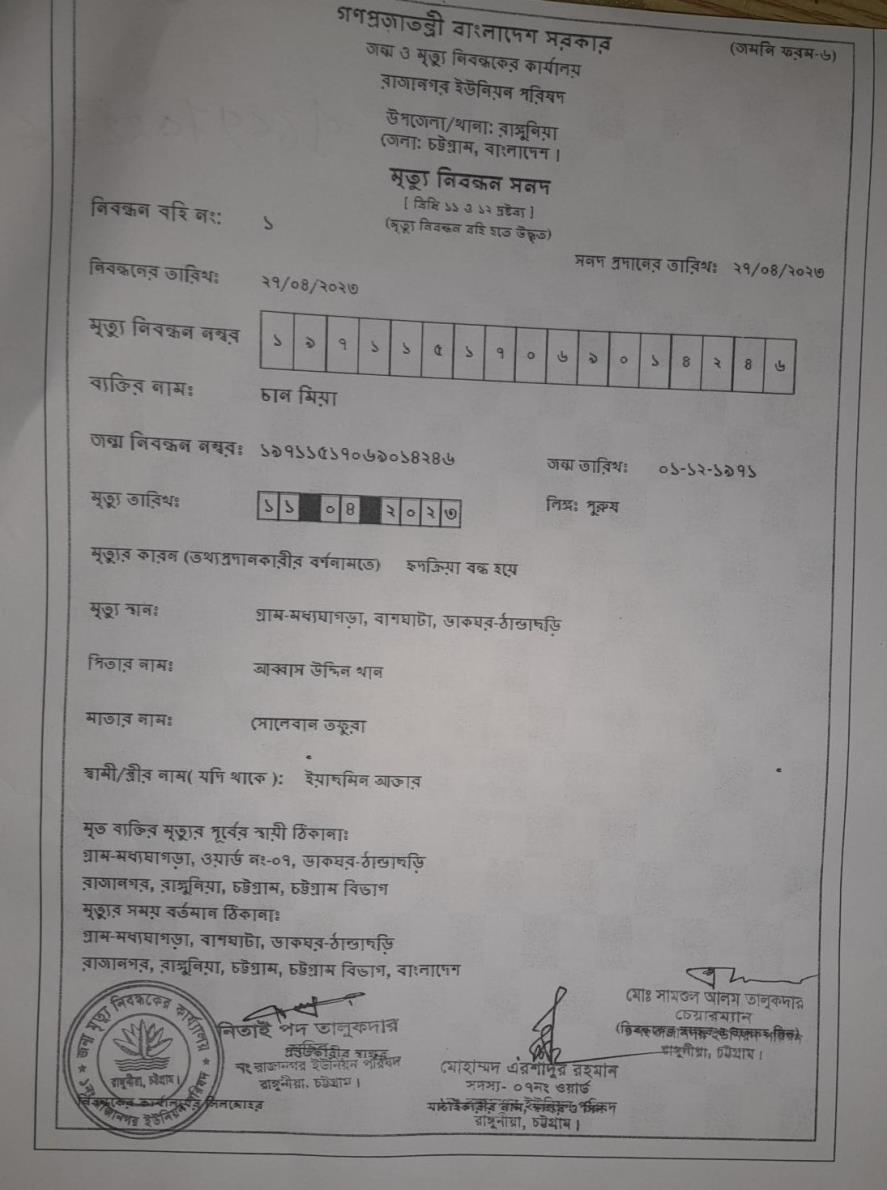 গণপ্রজাতন্ত্রী বাংলাদেশ সরকার
(জমনি ফরম-৬)
জন্ম ও মৃত্যু নিবন্ধকের কার্যালয়
রাজানগর ইউনিয়ন পরিষদ
উপজেলা/থানা: রাঙ্গুনিয়া
জেলা: চট্টগ্রাম, বাংলাদেশ।
মৃত্যু নিবন্ধন সনদ
[ বিধি ১১ ও ১২ দ্রষ্টব্য ]
(মৃত্যু নিবন্ধন বহি হতে উদ্ধৃত)
নিবন্ধন বহি নং: ১
সনদ প্রদানের তারিখ: ২৭/০৪/২০২৩
নিবন্ধনের তারিখ: ২৭/০৪/২০২৩
মৃত্যু নিবন্ধন নম্বর ১ ৯ ৭ ১ ১ ৫ ১ ৭ ০ ৬ ৯ ০ ১ ৪ ২ ৪ ৬
ব্যক্তির নাম: চান মিয়া
জন্ম নিবন্ধন নম্বর: ১৯৭১১৫১৭০৬৯০১৪২৪৬ জন্ম তারিখ: ০১-১২-১৯৭১
মৃত্যু তারিখ: ১ ১ ০ ৪ ২ ০ ২ ৩ লিঙ্গ: পুরুষ
মৃত্যুর কারন (তথ্যপ্রদানকারীর বর্ণনামতে) হৃদক্রিয়া বন্ধ হয়ে
মৃত্যু স্থান: গ্রাম-মধ্যঘাগড়া, বাগঘাটা, ডাকঘর-ঠান্ডাছড়ি
পিতার নাম: আব্বাস উদ্দিন খান
মাতার নাম: সোনেবান তফুরা
স্বামী/স্ত্রীর নাম( যদি থাকে ): ইয়াছমিন আক্তার
মৃত ব্যক্তির মৃত্যুর পূর্বের স্থায়ী ঠিকানা:
গ্রাম-মধ্যঘাগড়া, ওয়ার্ড নং-০৭, ডাকঘর-ঠান্ডাছড়ি
রাজানগর, রাঙ্গুনিয়া, চট্টগ্রাম, চট্টগ্রাম বিভাগ
মৃত্যুর সময় বর্তমান ঠিকানা:
গ্রাম-মধ্যঘাগড়া, বাগঘাটা, ডাকঘর-ঠান্ডাছড়ি
রাজানগর, রাঙ্গুনিয়া, চট্টগ্রাম, চট্টগ্রাম বিভাগ, বাংলাদেশ
জন্ম মৃত্যু নিবন্ধকের কার্যালয়
রাঙ্গুনীয়া, চট্টগ্রাম।
নিবন্ধকের কার্যালয়ের সিলমোহর
নিতাই পদ তালুকদার
রাজানগর ইউনিয়ন পরিষদ
রাঙ্গুনীয়া, চট্টগ্রাম।
মোহাম্মদ এরশাদুর রহমান
সদস্য- ০৭নং ওয়ার্ড
রাঙ্গুনীয়া, চট্টগ্রাম।
তালুকদার
চেয়ারম্যান
রাঙ্গুনীয়া, চট্টগ্রাম।